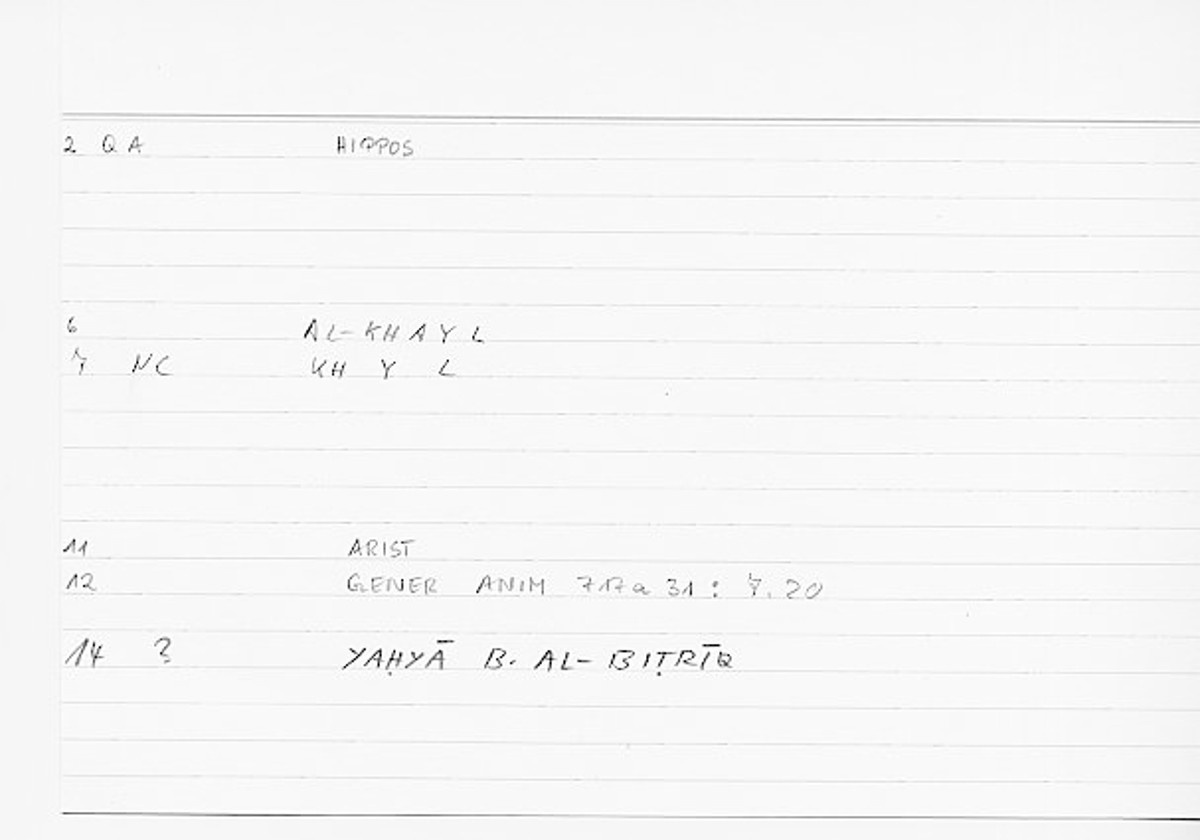 2 QA HIPPOS
6 AL-KHAYL
7 NC KH Y L
11 ARIST
12 GENER ANIM 717a 31 : 7.20
14 ? YAḤYĀ B. AL-BIṬRĪQ